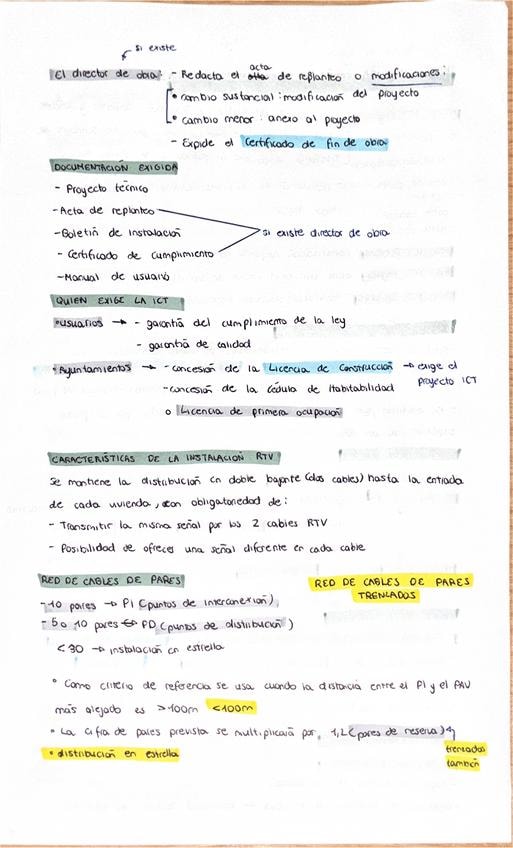 si existe
El director de obra: - Redacta el acta de replanteo o modificaciones:
• cambio sustancial: modificación del proyecto
• cambio menor: anexo al proyecto
- Expide el Certificado de fin de obra
DOCUMENTACIÓN EXIGIDA
- Proyecto técnico
- Acta de replanteo
- Boletín de instalación
si existe director de obra
- Certificado de cumplimiento
- Manual de usuario
QUIEN EXIGE LA ICT
•usuarios → - garantía del cumplimiento de la ley
- garantía de calidad
•Ayuntamientos → - concesión de la Licencia de Construcción → exige el
proyecto ICT
- concesión de la Cédula de Habitabilidad
o Licencia de primera ocupación
CARACTERÍSTICAS DE LA INSTALACIÓN RTV
Se mantiene la distribución en doble bajante (dos cables) hasta la entrada
de cada vivienda, con obligatoriedad de:
- Transmitir la misma señal por los 2 cables RTV
- Posibilidad de ofrecer una señal diferente en cada cable
RED DE CABLES DE PARES
RED DE CABLES DE PARES
TRENZADOS
- 10 pares → PI (puntos de interconexión)
- 5 o 10 pares ↔ PD (puntos de distribución)
<30 → instalación en estrella
° Como criterio de referencia se usa cuando la distancia entre el PI y el PAU
más alejado es >100m <100m
• La cifra de pares prevista se multiplicará por 1,2 (pares de reserva)
trenzados
también
• distribución en estrella